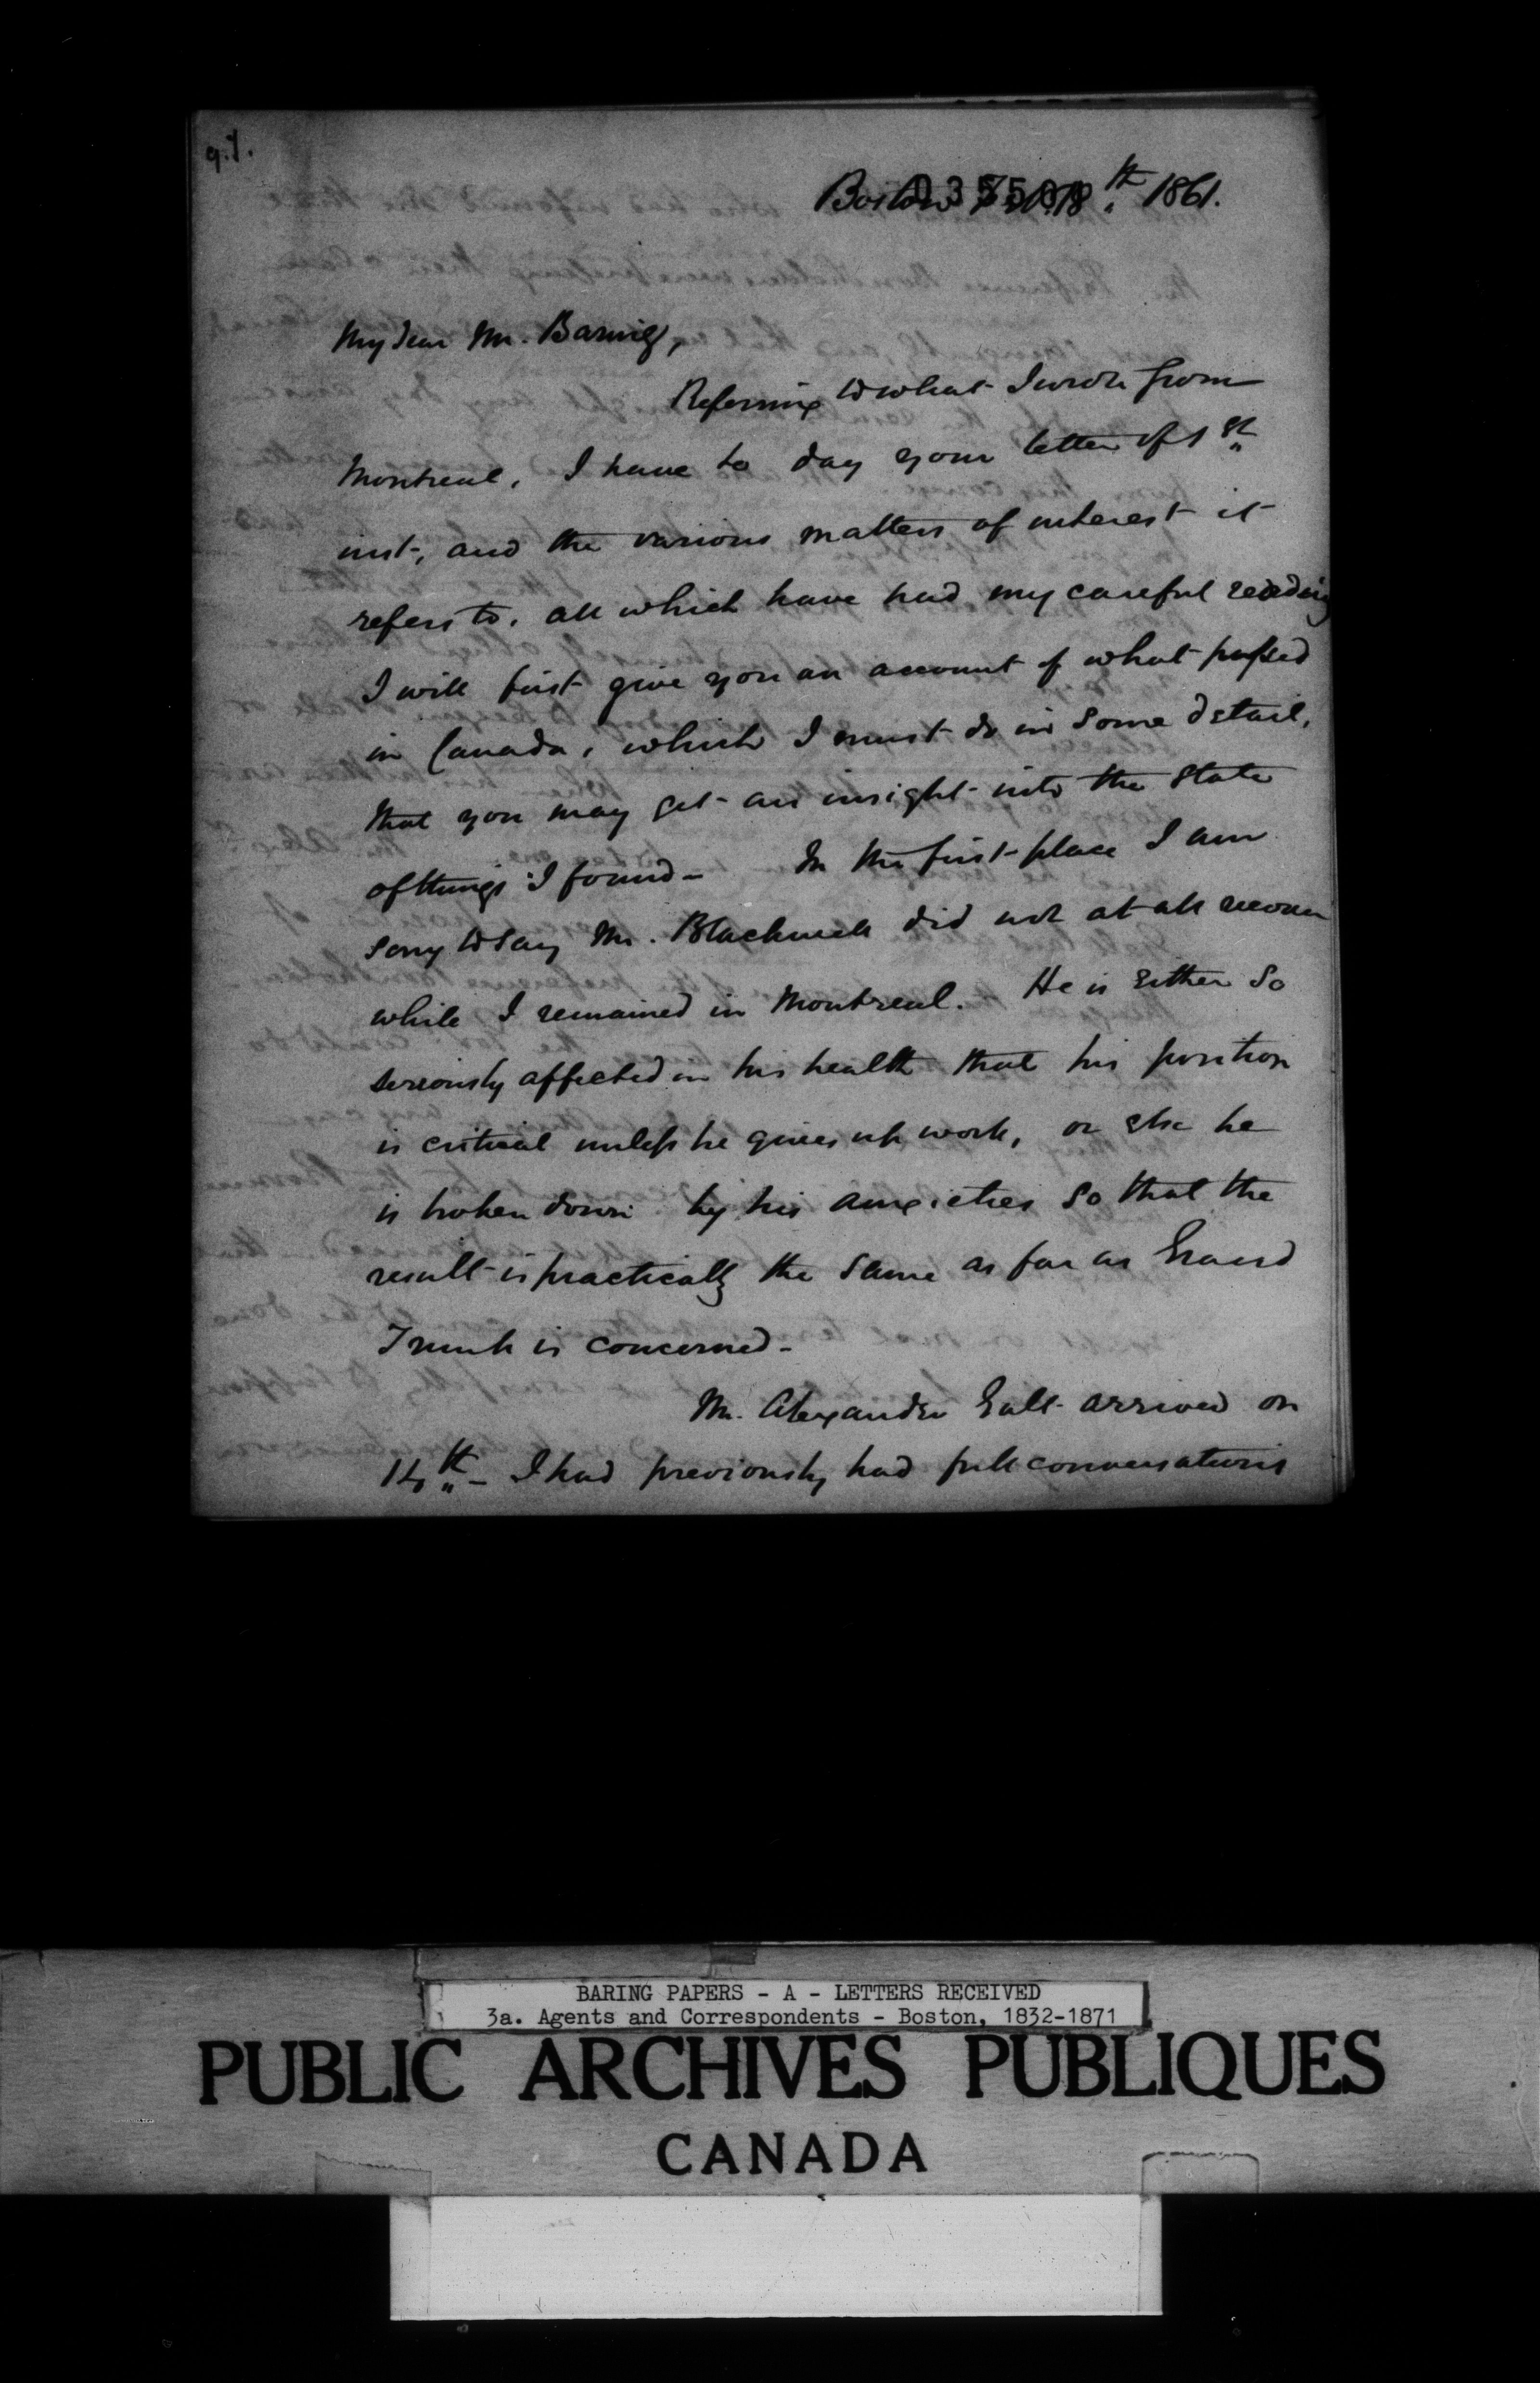 Boston 18th 1861.
My dear Mr. Baring,
Referring to what I wrote from
Montreal, I have to day your letter of 1st
inst, and the various matters of interest it
refers to, all which have had my careful reading
I will first give you an account of what passed
in Canada, which I must do in some detail,
that you may get an insight into the state
of things I found - In the first place I am
sorry to say Mr. Blackwell did not at all recover
while I remained in Montreal. He is either so
seriously affected in his health that his position
is critical unless he gives up work, or else he
is broken down by his anxieties so that the
result is practically the same as far as Grand
Trunk is concerned -
Mr. Alexander Galt arrived on
14th - I had previously had full conversations
BARING PAPERS - A - LETTERS RECEIVED
3a. Agents and Correspondents - Boston, 1832-1871
PUBLIC ARCHIVES PUBLIQUES
CANADA